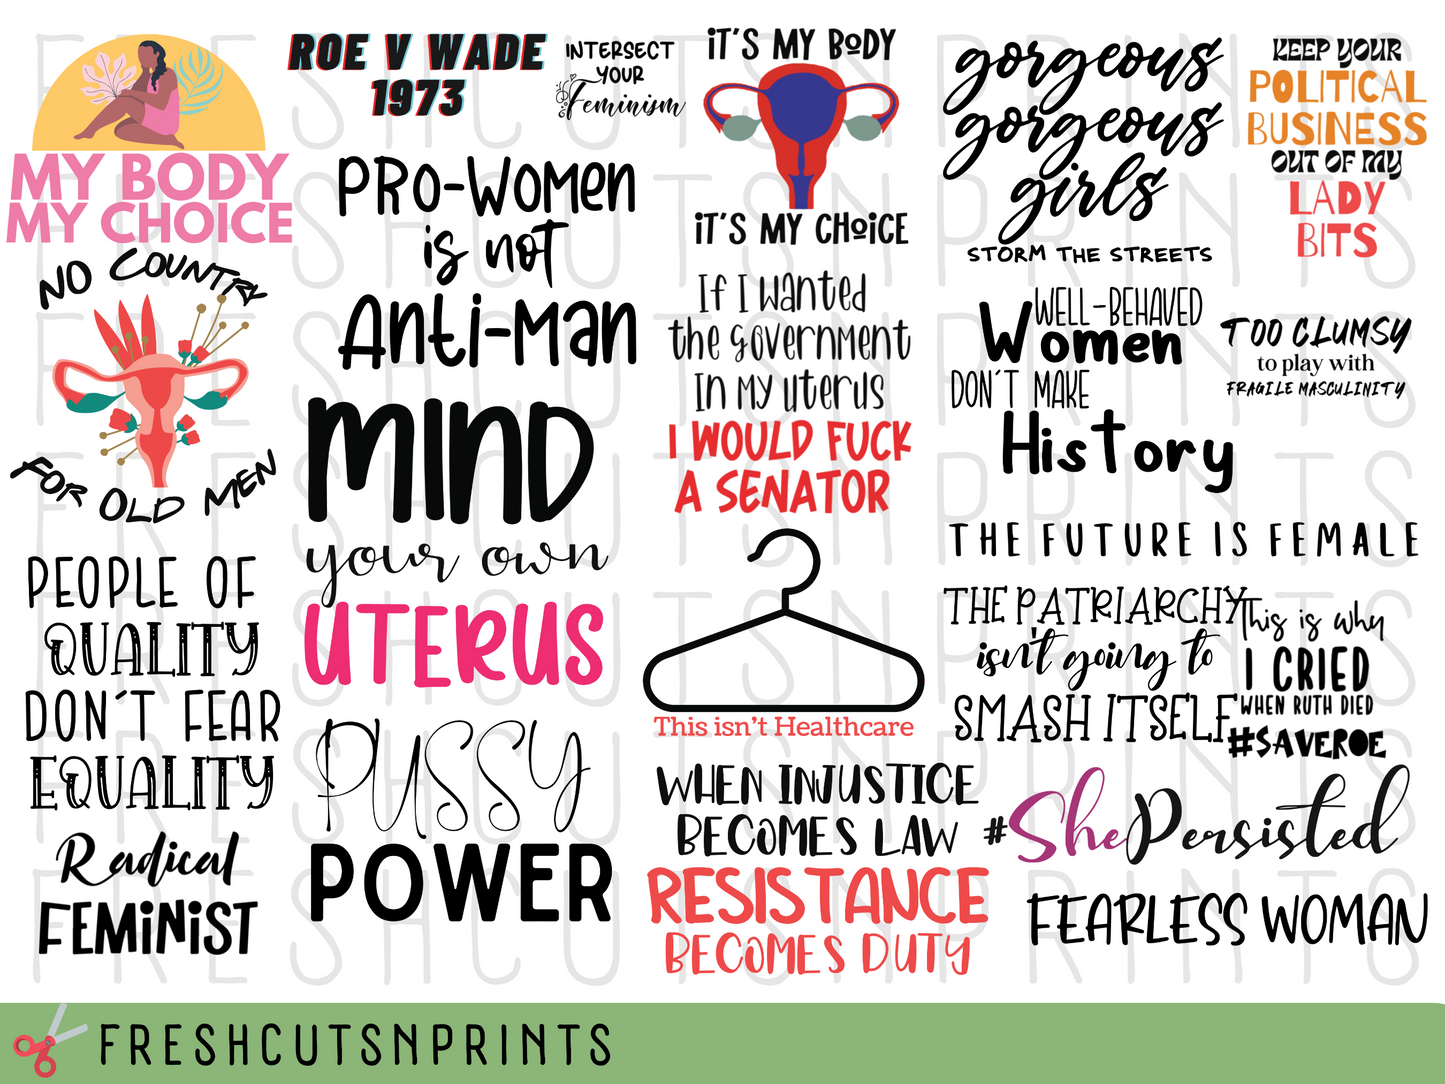 MY BODY
MY CHOICE
NO COUNTRY
FOR OLD MEN
PEOPLE OF
QUALITY
DON'T FEAR
EQUALITY
Radical
FEMINIST
ROE V WADE
1973
INTERSECT
YOUR
Feminism
PRO-WOMEN
is not
Anti-Man
MIND
your own
UTERUS
PUSSY
POWER
IT'S MY BODY
IT'S MY CHOICE
If I wanted
the government
In my uterus
I WOULD FUCK
A SENATOR
This isn't Healthcare
WHEN INJUSTICE
BECOMES LAW
RESISTANCE
BECOMES DUTY
gorgeous
gorgeous
girls
STORM THE STREETS
KEEP YOUR
POLITICAL
BUSINESS
OUT OF MY
LADY
BITS
WELL-BEHAVED
Women
DON'T MAKE
History
TOO CLUMSY
to play with
FRAGILE MASCULINITY
THE FUTURE IS FEMALE
THE PATRIARCHY
isn't going to
SMASH ITSELF
This is why
I CRIED
WHEN RUTH DIED
#SAVEROE
#ShePersisted
FEARLESS WOMAN
FRESHCUTSNPRINTS
FRESHCUTSNPRINTS
FRESHCUTSNPRINTS
FRESHCUTSNPRINTS
FRESHCUTSNPRINTS